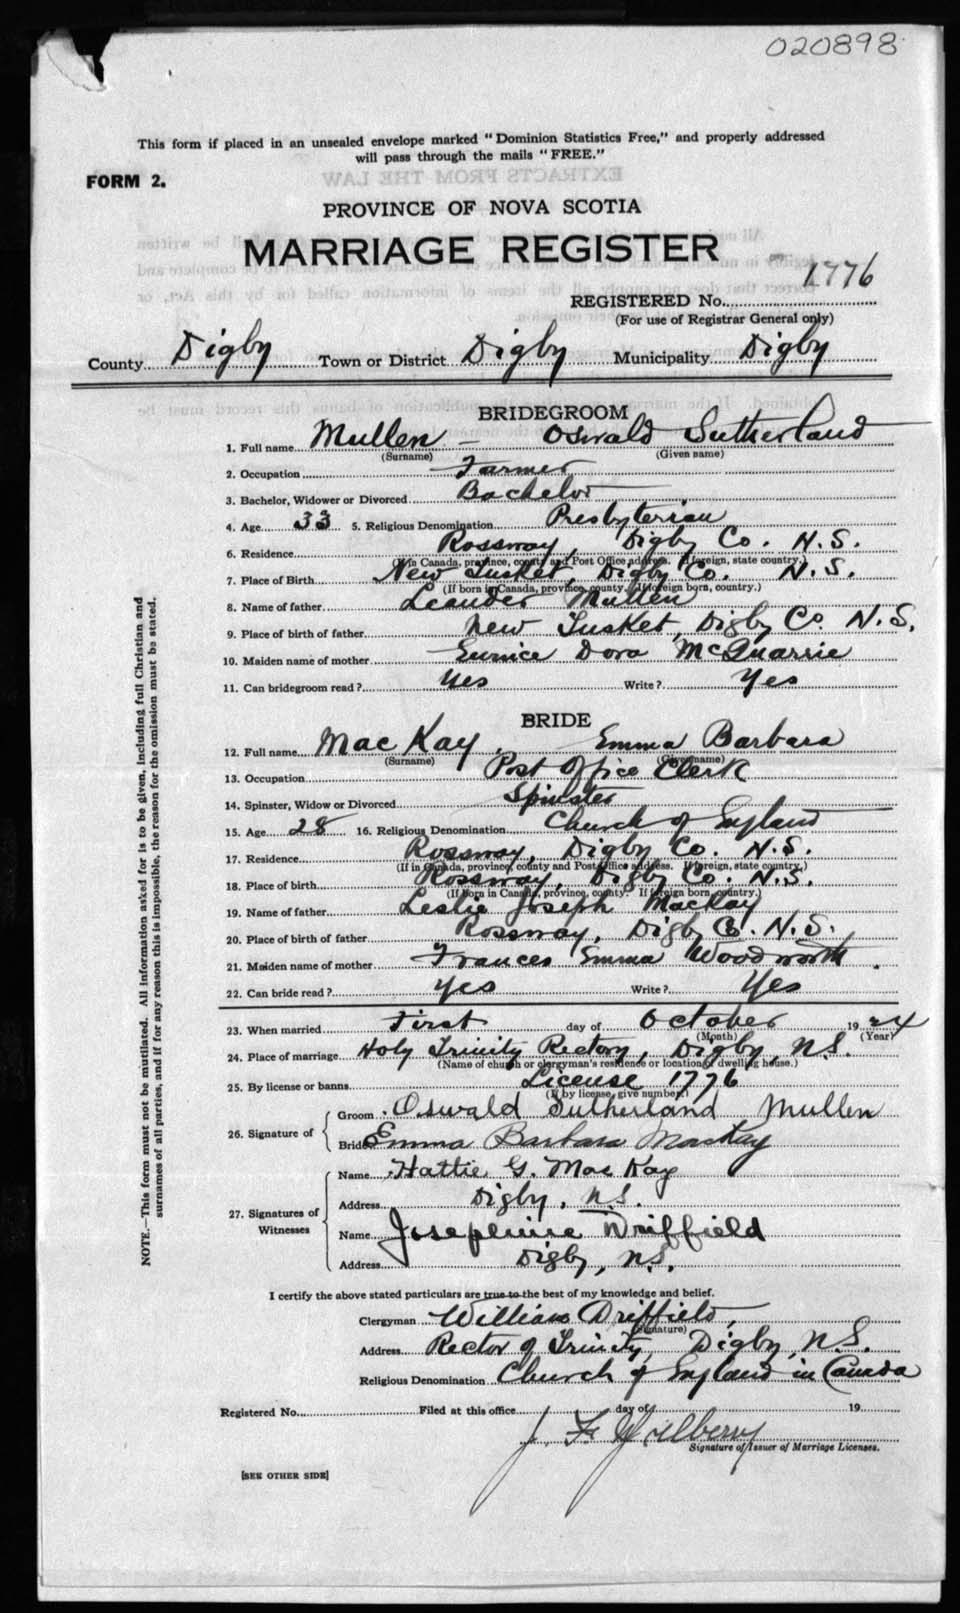 020898
This form if placed in an unsealed envelope marked "Dominion Statistics Free," and properly addressed
will pass through the mails "FREE."
FORM 2.
PROVINCE OF NOVA SCOTIA
MARRIAGE REGISTER
REGISTERED No. 1776
(For use of Registrar General only)
County Digby Town or District Digby Municipality Digby
BRIDEGROOM
1. Full name Mullen - Oswald Sutherland
(Surname) (Given name)
2. Occupation Farmer
3. Bachelor, Widower or Divorced Bachelor
4. Age 33 5. Religious Denomination Presbyterian
6. Residence Rossway, Digby Co. N.S.
(If in Canada, province, county and Post Office address. If foreign, state country.)
7. Place of Birth New Tusket, Digby Co. N.S.
(If born in Canada, province, county. If foreign born, country.)
8. Name of father Leander Mullen
9. Place of birth of father New Tusket, Digby Co. N.S.
10. Maiden name of mother Eunice Dora McQuarrie
11. Can bridegroom read? Yes Write? Yes
BRIDE
12. Full name MacKay, Emma Barbara
(Surname) (Given name)
13. Occupation Post Office Clerk
14. Spinster, Widow or Divorced Spinster
15. Age 28 16. Religious Denomination Church of England
17. Residence Rossway, Digby Co. N.S.
(If in Canada, province, county and Post Office address. If foreign, state country.)
18. Place of birth Rossway, Digby Co. N.S.
(If born in Canada, province, county. If foreign born, country.)
19. Name of father Leslie Joseph MacKay
20. Place of birth of father Rossway, Digby Co. N.S.
21. Maiden name of mother Frances Emma Woodworth.
22. Can bride read? Yes Write? Yes
23. When married First day of October 1924
(Month) (Year)
24. Place of marriage Holy Trinity Rectory, Digby, N.S.
(Name of church or clergyman's residence or location of dwelling house.)
25. By license or banns License 1776
(If by license, give number.)
26. Signature of
Groom Oswald Sutherland Mullen
Bride Emma Barbara MacKay
27. Signatures of Witnesses
Name Hattie G. MacKay
Address Digby, N.S.
Name Josephine Driffield
Address Digby, N.S.
I certify the above stated particulars are true to the best of my knowledge and belief.
Clergyman William Driffield,
(Signature)
Address Rector of Trinity, Digby, N.S.
Religious Denomination Church of England in Canada
Registered No. Filed at this office day of 19
J. F.
Signature of Issuer of Marriage Licenses.
[SEE OTHER SIDE]
NOTE.—This form must not be mutilated. All information asked for is to be given, including full Christian and
surnames of all parties, and if for any reason this is impossible, the reason for the omission must be stated.